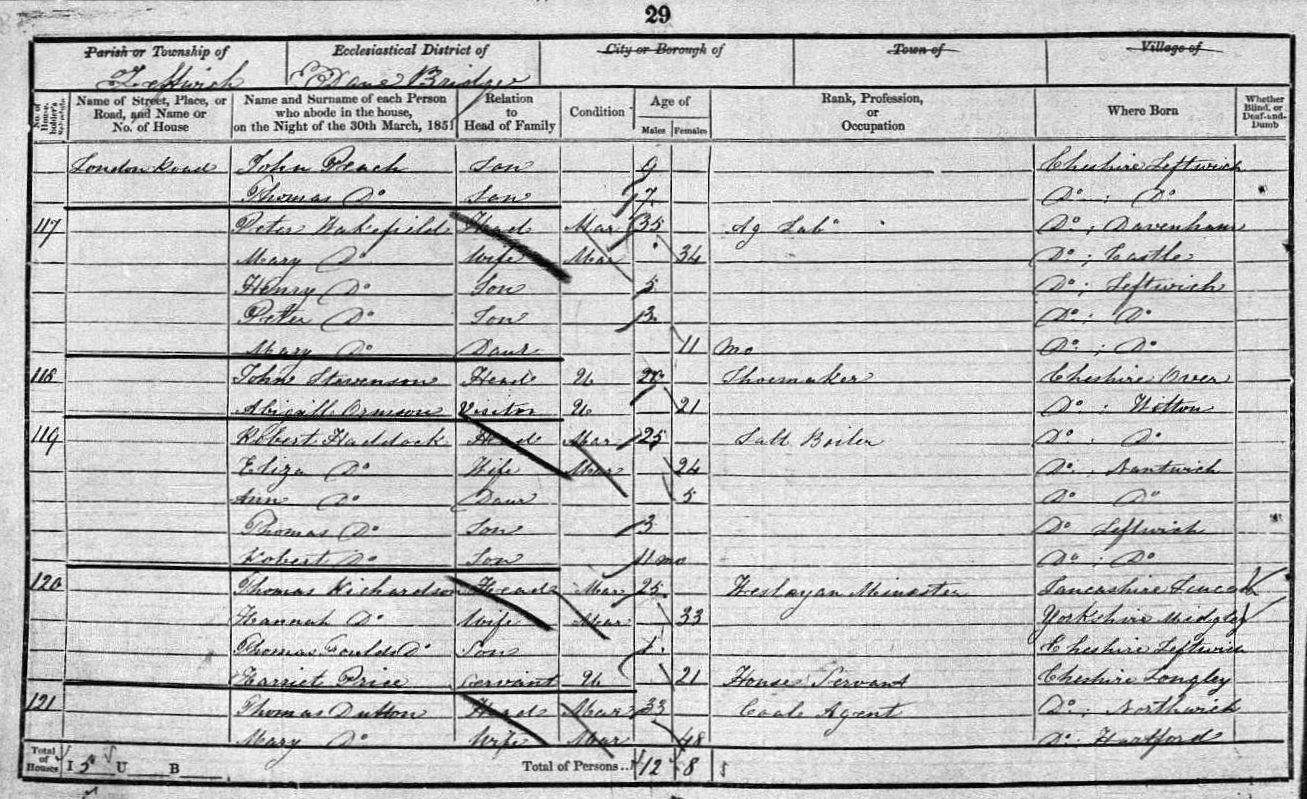 29
Parish or Township of Ecclesiastical District of City or Borough of Town of Village of
Leftwich Dane Bridge
No. of House-holder's Schedule Name of Street, Place, or Road, and Name or No. of House Name and Surname of each Person who abode in the house, on the Night of the 30th March, 1851 Relation to Head of Family Condition Age of Males Females Rank, Profession, or Occupation Where Born Whether Blind, or Deaf-and-Dumb
London Road John Peach Son 9 Cheshire Leftwich
Thomas Do Son 7 Do ; Do
117 Peter Wakefield Head Mar 35 Ag Lab Do ; Davenham
Mary Do Wife Mar 34 Do ; Castle
Henry Do Son 5 Do ; Leftwich
Peter Do Son 3 Do ; Do
Mary Do Daur 11 mo Do ; Do
118 John Stevenson Head U Shoemaker Cheshire Over
Abigall Ormson Visitor U 21 Do ; Witton
119 Robert Haddock Head Mar 25 Salt Boiler Do ; Do
Eliza Do Wife Mar 24 Do ; Nantwich
Ann Do Daur 5 Do Do
Thomas Do Son 3 Do Leftwich
Robert Do Son 11 mo Do ; Do
120 Thomas Richardson Head Mar 25 Wesleyan Minester Lancashire
Hannah Do Wife Mar 33 Yorkshire Midgley
Thomas Do Son 1 Cheshire Leftwich
Harriet Price Servant U 21 House Servant Cheshire Longley
121 Thomas Dutton Head Mar 33 Coal Agent Do ; Northwich
Mary Do Wife Mar 48 Do ; Hartford
Total of Houses I 5 U B Total of Persons... 12 8